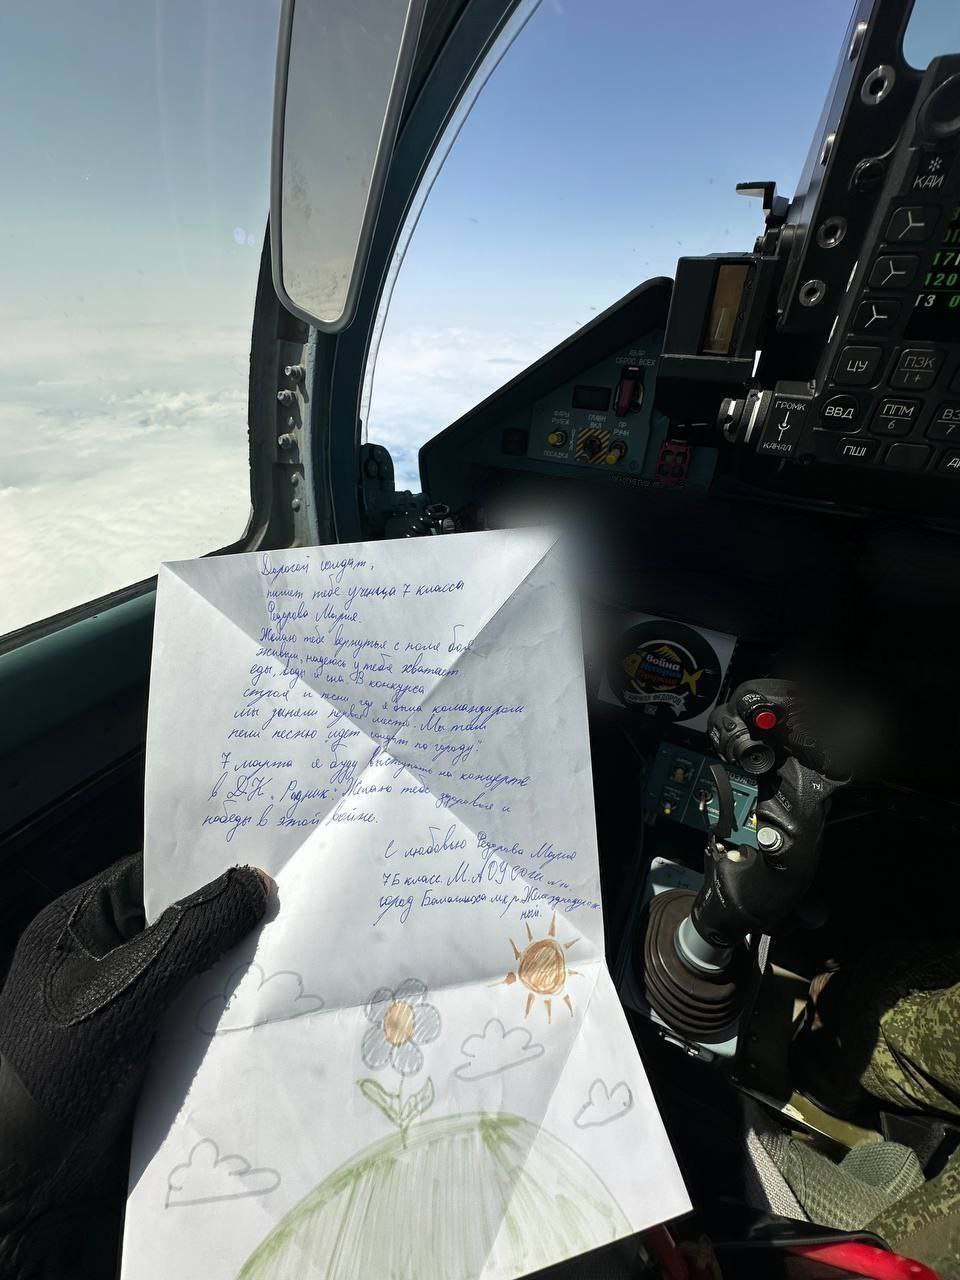 Дорогой солдат,
пишет тебе ученица 7 класса
Федорова Мария.
Желаю тебе вернутья с поля боя
живым, надеюсь у тебя хватает
еды, воды и сна. В конкурсе
строя и песни, где я была командиром
мы заняли первое место. Мы там
пели песню "идет солдат по городу".
7 марта я буду выступать на концерте
в Д.К. "Родник". Желаю тебе здоровья и
победы в этой войне.
С любовью Федорова Мария
7Б класс. МАОУ СОШ
город Балашиха мк.р. Железнодорож-
ный.
СБРОС ВСЕХ
ФАРЫ
РУЛЕЖ
ПОСАДКА
ГЛАВН
ВКЛ
КАЙ
ГРОМК
КАНАЛ
ЦУ
ПЗК
1+
ВВД
ППМ
6
ВЗ
7
ПШ
120
Война
История
Оружие